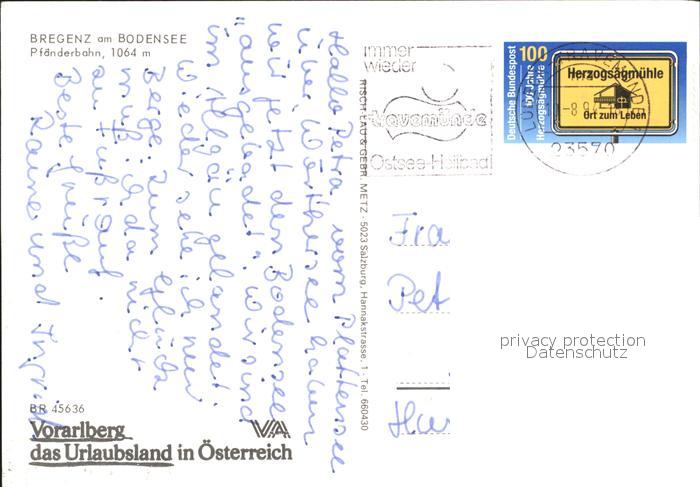 BREGENZ am BODENSEE
Pfänderbahn, 1064 m
Hallo Petra vom Plattensee
über Wörthersee haben
wir jetzt den Bodensee
"ausgebadet", wir sind
im Allgäu gelandet.
Wieder sehe ich nur
Berge. Zum Glück
muß ich da nicht
zu Fuß rauf.
Beste Grüße
Rainer und Ingrid
BR 45636
Vorarlberg
das Urlaubsland in Österreich
VA
RISCH-LAU & GEBR. METZ · 5023 Salzburg, Hannakstrasse 1 · Tel. 660430
immer
wieder
Travemünde
Ostsee-Heilbad
Deutsche Bundespost
100
100 Jahre
Herzogsägmühle
Herzogsägmühle
Ort zum Leben
23570
Fra
Pet
Ha
privacy protection
Datenschutz